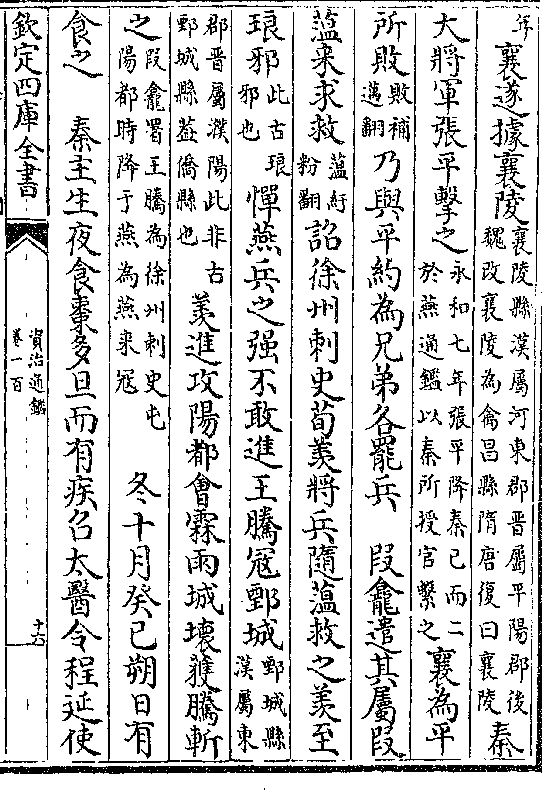 襄遂據襄陵襄陵縣漢屬河東郡晉屬平陽郡後魏改襄陵為禽昌縣隋唐復曰襄陵秦
大將軍張平擊之永和七年張平降秦已而二於燕通鑑以秦所授官繫之襄為平
所敗敗補邁翻乃與平約為兄弟各罷兵　段龕遣其屬段
藴来求救藴紆粉翻詔徐州刺史荀羨將兵隨藴救之羨至
琅邪此古琅邪也憚燕兵之强不敢進王騰寇鄄城鄄城縣漢屬東
郡晉屬濮陽此非古鄄城縣葢僑縣也羨進攻陽都會霖雨城壞獲騰斬
之段龕署王騰為徐州刺史屯陽都時降于燕為燕来寇　冬十月癸巳朔日有
食之　秦主生夜食棗多旦而有疾召太醫令程延使
欽定四庫全書
資治通鑑
卷一百
十六